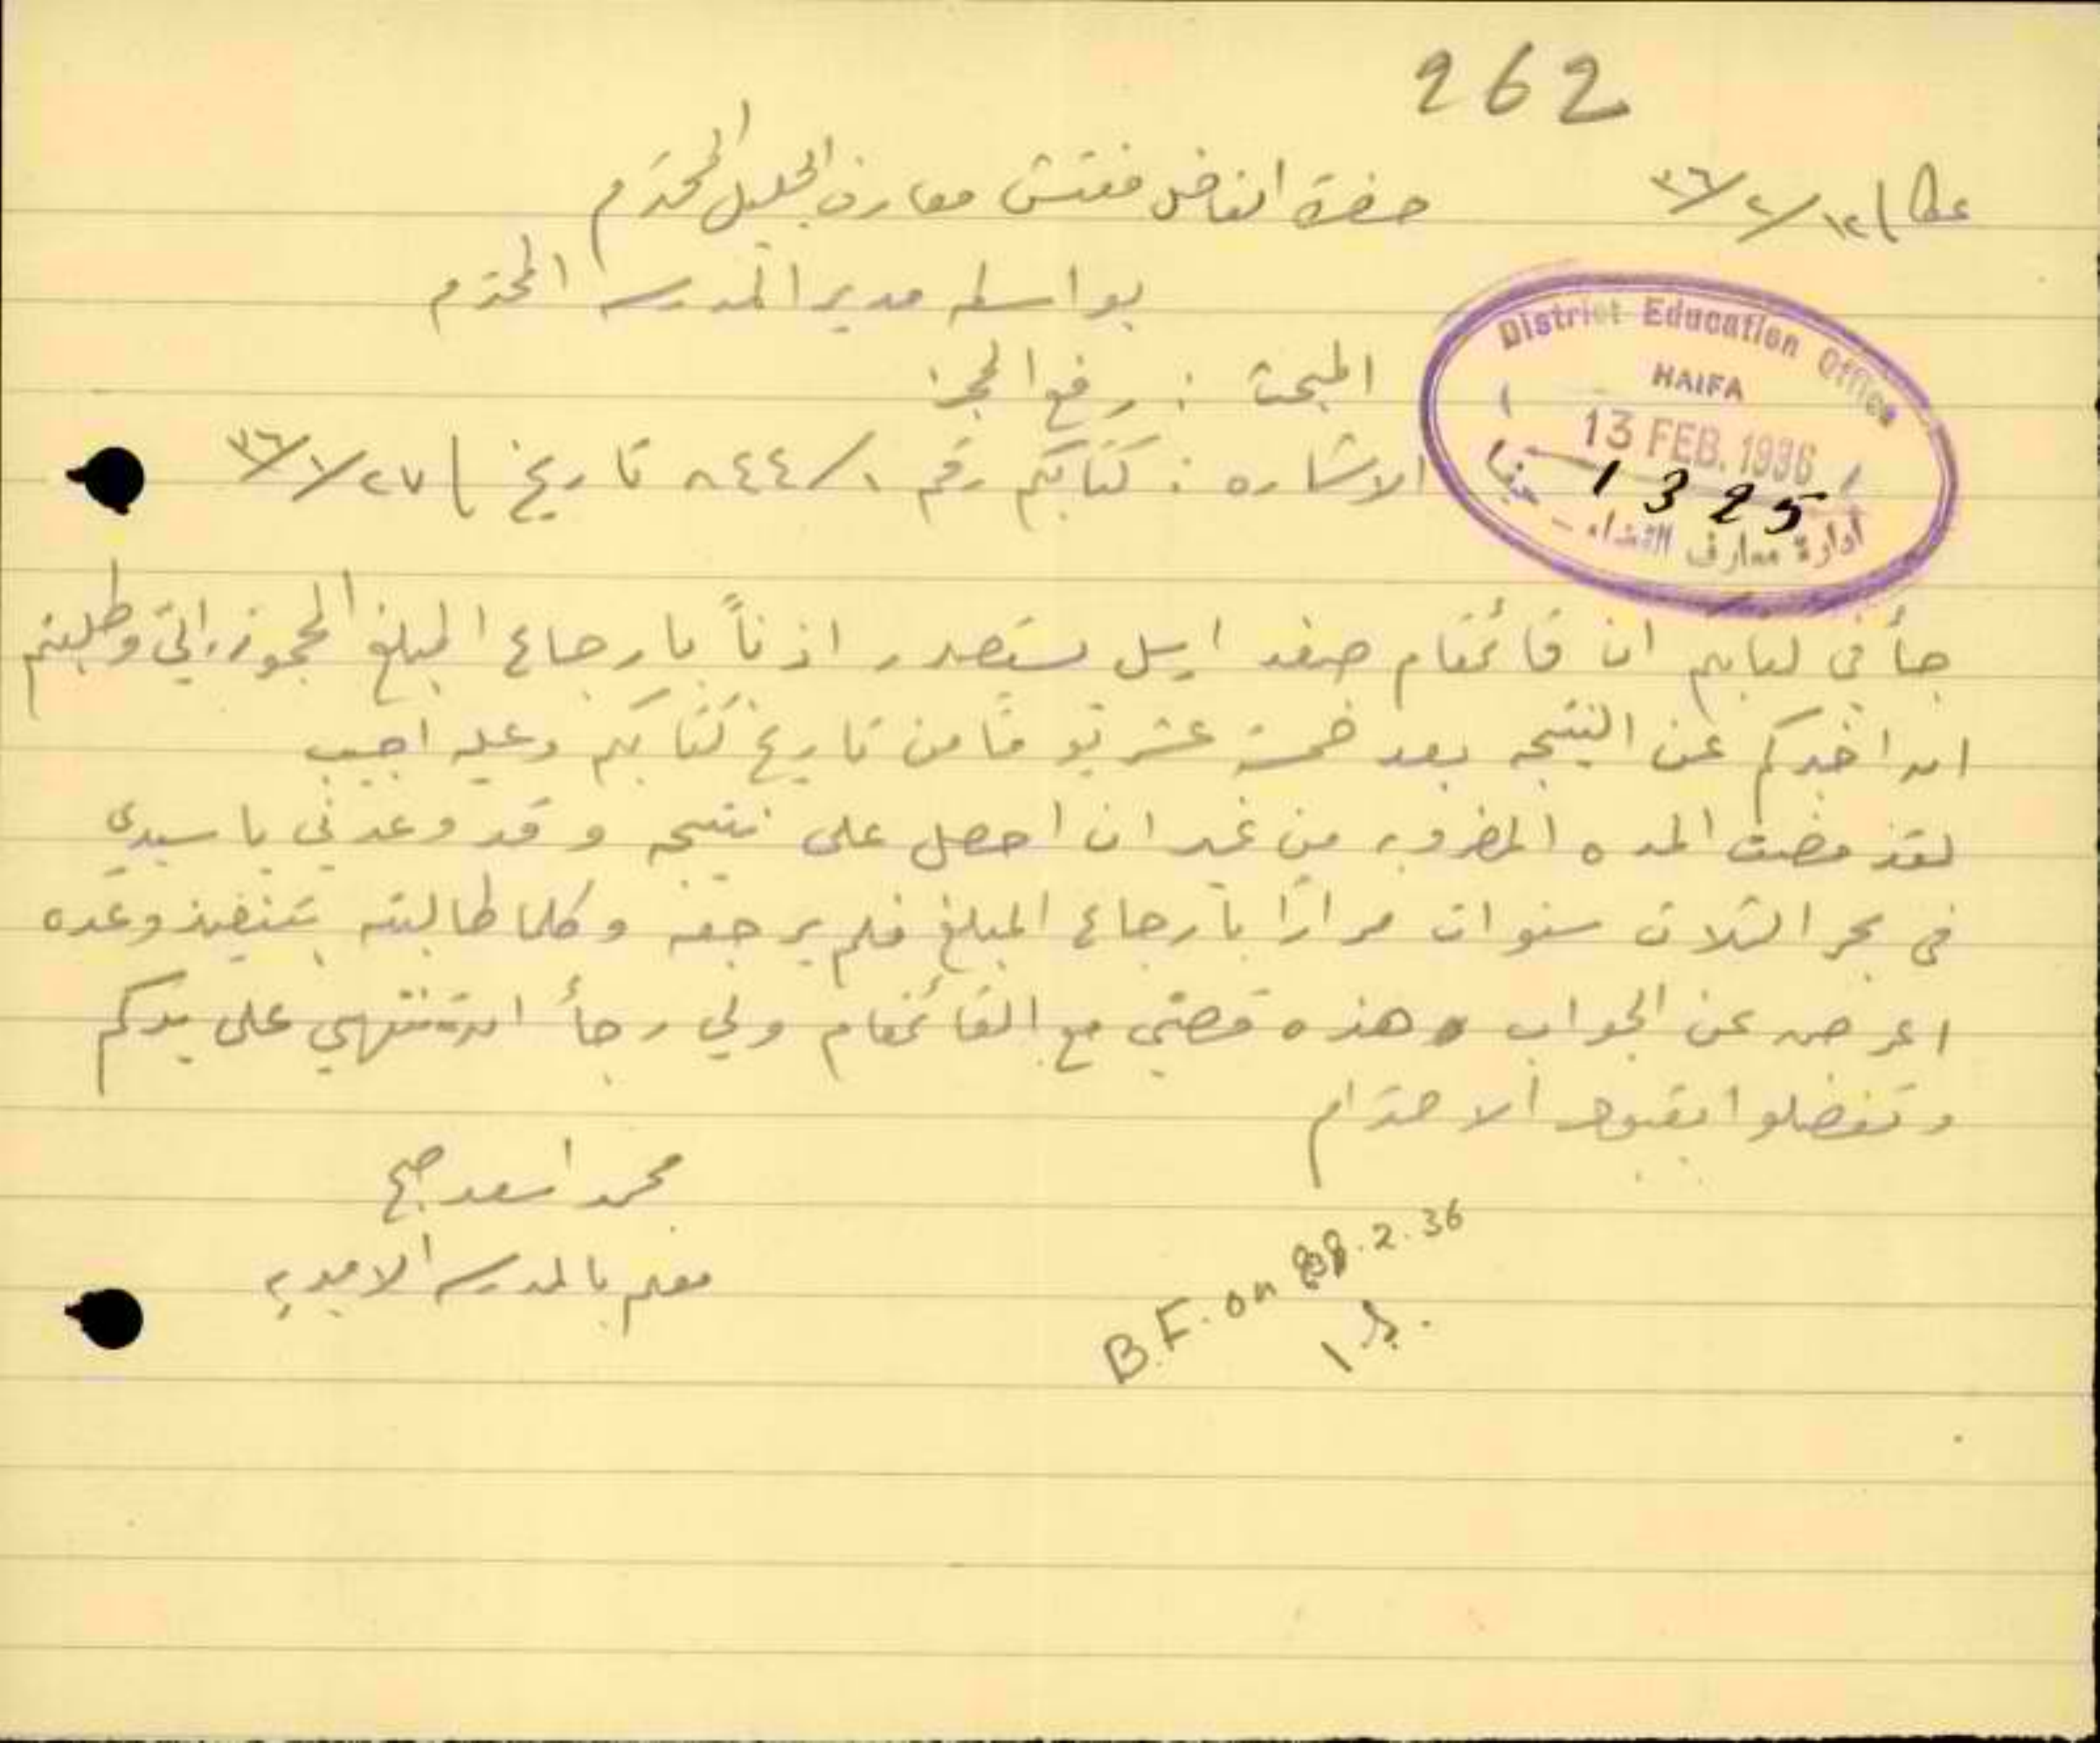 262
عكا ١٢/٢/٣٦
حضرة الفاضل مفتش معارف الجليل المحترم
بواسطه مدير المدرسه المحترم
District Education Office
HAIFA
13 FEB. 1936
1325
ادارة معارف القضاء - حيفا
المبحث : رفع الحجز
الاشاره : كتابكم رقم ٨٤٤/١ تاريخ ٢٧/١/٣٦
جأ في كتابكم ان قائمقام صفد ارسل يستصدر اذناً بارجاع المبلغ المحجوز الي وطلبتم
ان اخبركم عن النتيجه بعد خمسة عشر يوماً من تاريخ كتابكم وعليه اجيب
لقد مضت المده المضروبه من غير ان احصل على نتيجه وقد وعدني يا سيدي
في بحر الثلاث سنوات مراراً بارجاع المبلغ فلم يرجعه وكلما طالبته بتنفيذ وعده
اعرض عن الجواب وهذه قصتي مع القائمقام ولي رجأ ان تنتهي على يدكم
وتفضلوا بقبول الاحترام
محمد اسعد صبح
معلم بالمدرسه الاميريه
B.F. on 28.2.36